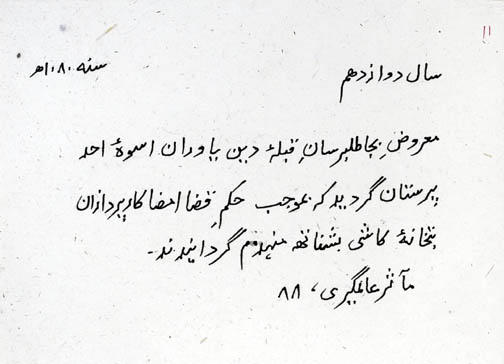 ۱۱
سال دوازدهم
سنه ۱۰۸۰ھ
معروضِ بجاطلبرسان قبلۂ دین یاوران اسوۂ احد
پرستان گردید که بموجب حکم قضا امضا کارپردازان
بتخانۂ کاشی بشناتھ منہدم گردانیدند۔
مآثر عالمگیری، ۸۸